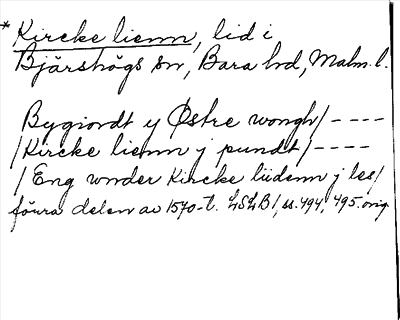 * Kircke lienn, lid i
Bjärshögs sn, Bara hd, Malm. l.
Bygiordt y Østre wongh/----
/Kircke lienn j pundt/----
/Eng wnder Kircke liidenn j les/
förra delen av 1570-t. LSLB 1, ss. 494, 495. orig